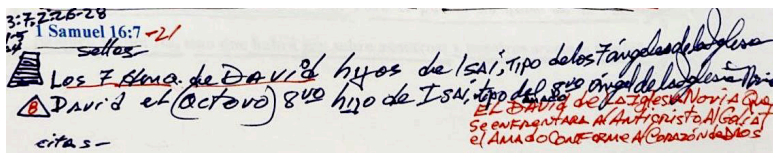 3:7,22:26-28
1 Samuel 16:7-21
sellos
Los 7 Hma. de DAVID hijos de ISAI, TIPO de los 7 ángeles de la Iglesia
8 DAVID el (octavo) 8vo hijo de ISAI, tipo del 8vo ángel de la Iglesia Novia
EL DAVID de LA Iglesia Novia Que
Se enFRentara Al Anticristo Al Goliat
el AmADO CONFORME Al CORAZÓN de DIOS
citas-